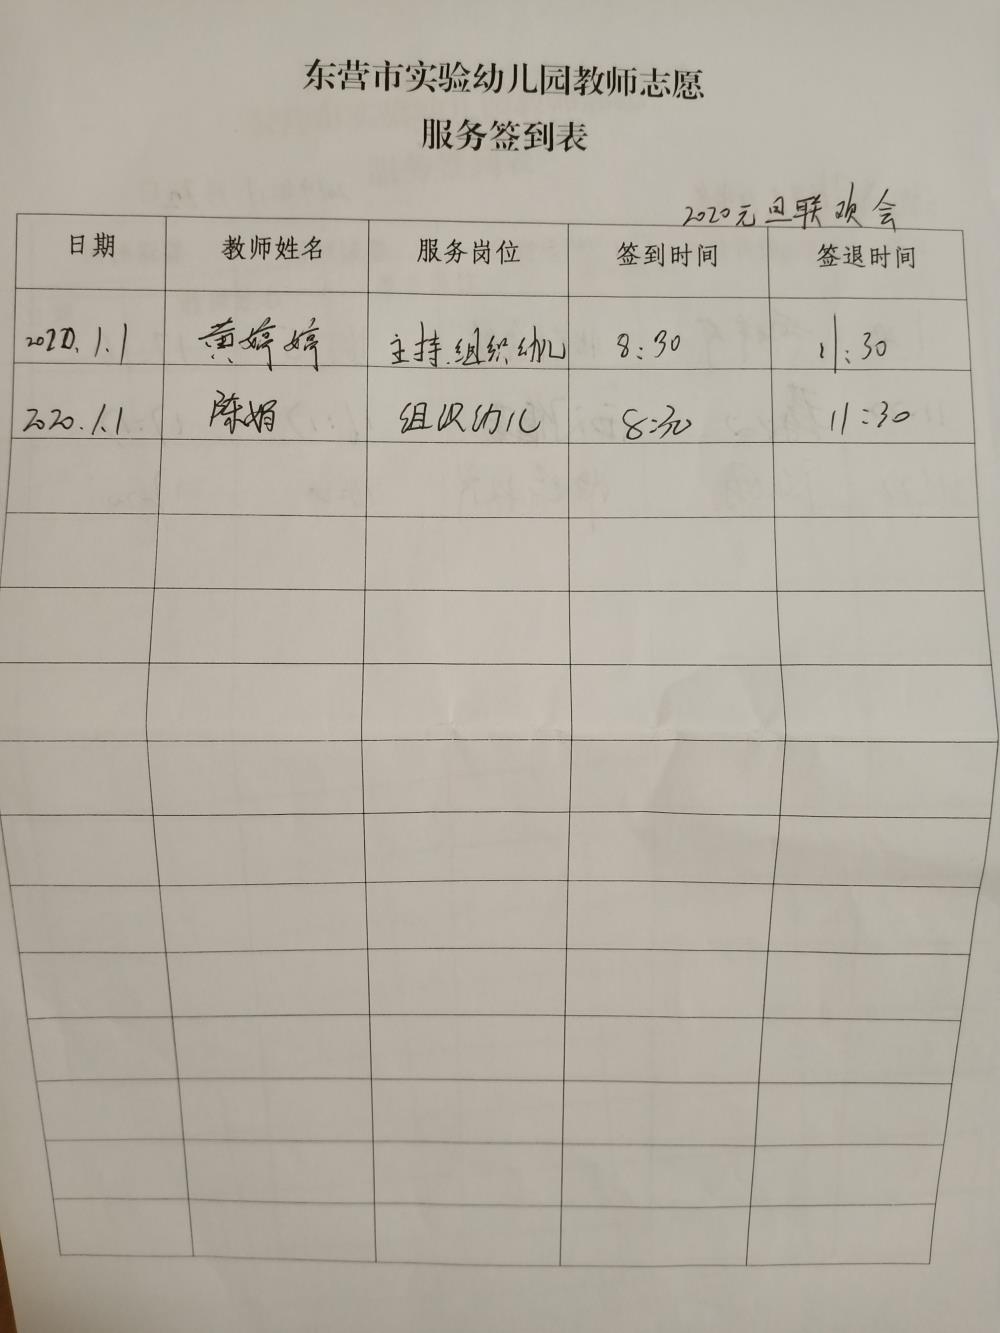 东营市实验幼儿园教师志愿
服务签到表
2020元旦联欢会
日期 教师姓名 服务岗位 签到时间 签退时间
2020.1.1 黄婷婷 主持.组织幼儿 8:30 11:30
2020.1.1 陈娟 组织幼儿 8:30 11:30